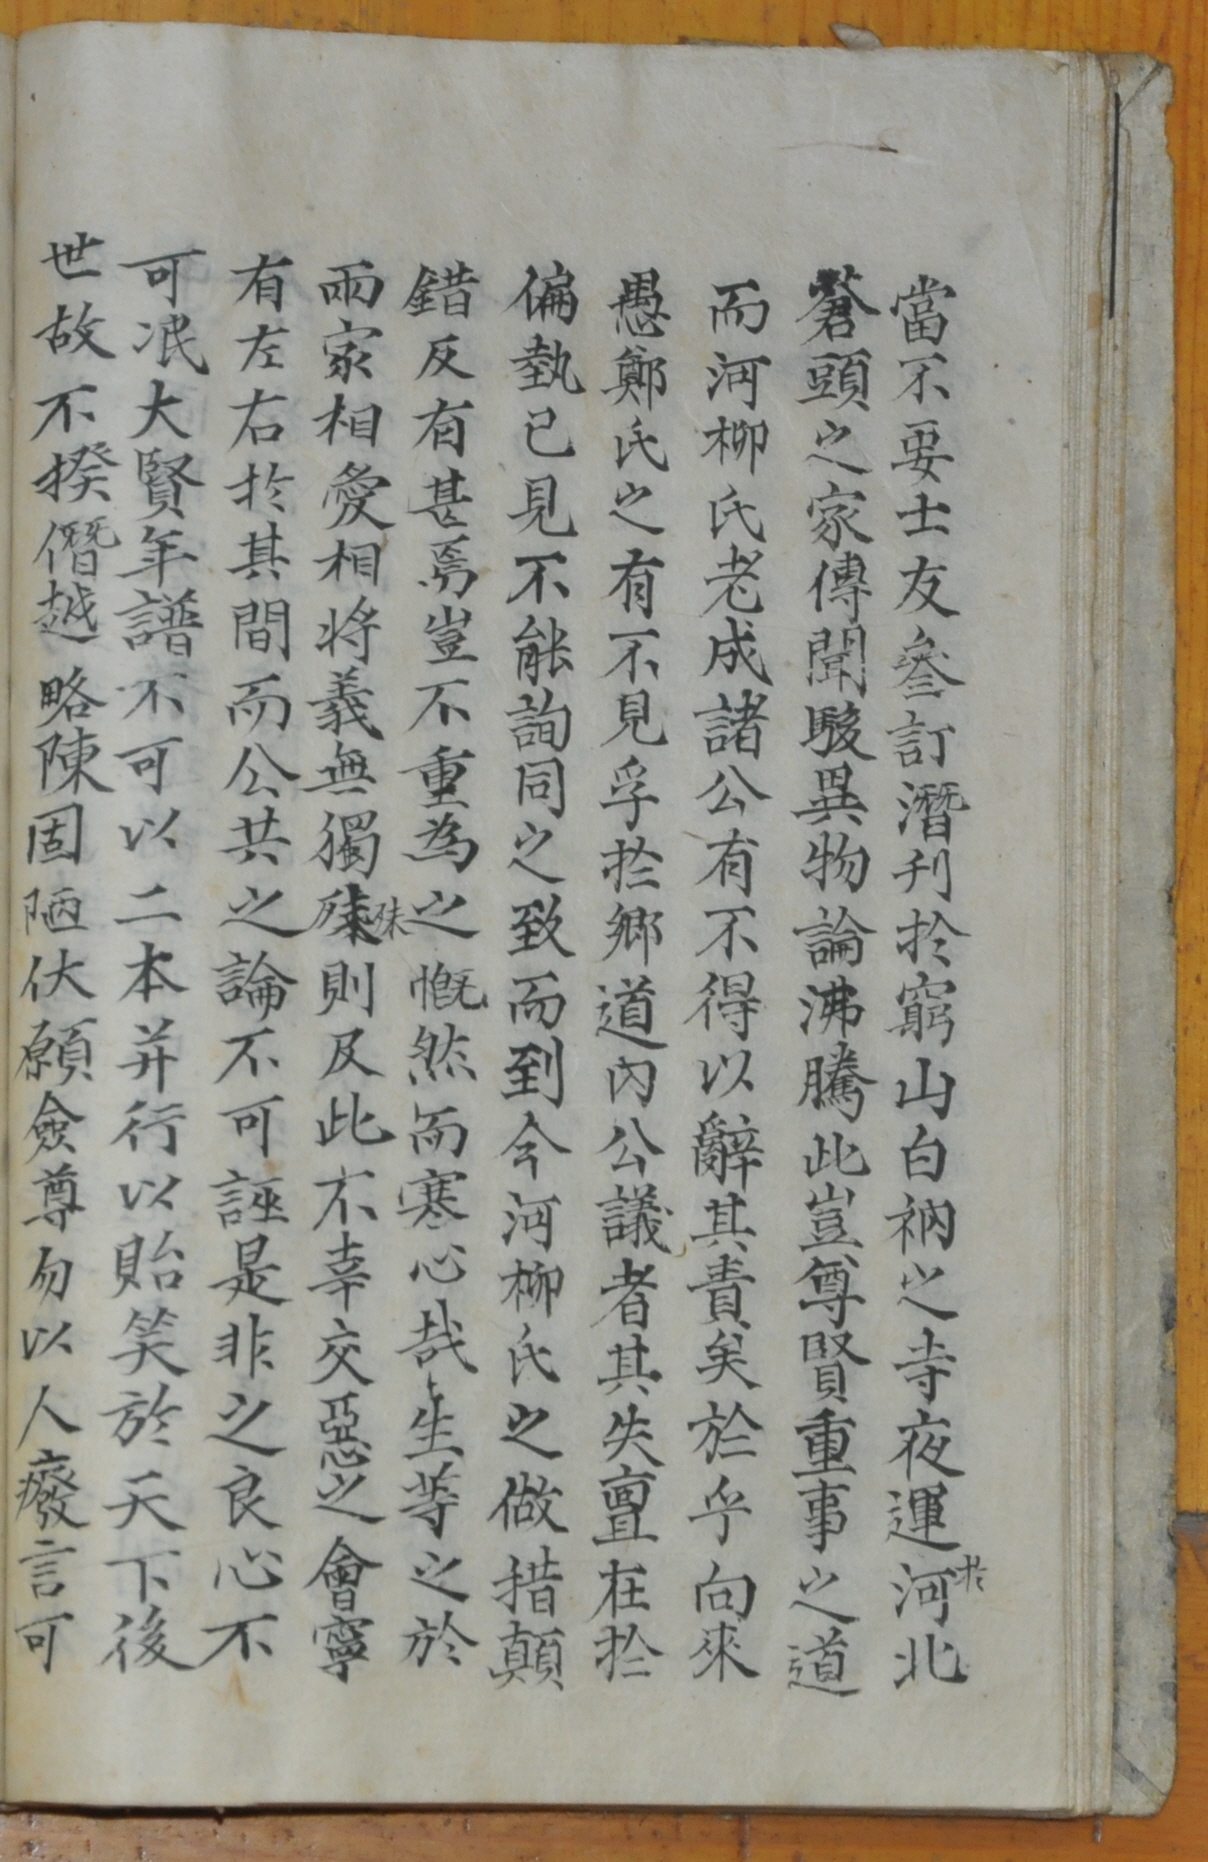 當不要士友叅訂潛刊於窮山白衲之寺夜運於河北
蒼頭之家傳聞駿異物論沸騰此豈尊賢重事之道
而河柳氏老成諸公有不得以辭其責矣於乎向來
愚鄭氏之有不見孚於鄉道內公議者其失亶在於
偏執已見不能詢同之致而到今河柳氏之做措顛
錯反有甚焉豈不重為之慨然而寒心哉生等之於
兩家相愛相將義無獨殊則及此不幸交惡之會寧
有左右於其間而公共之論不可誣是非之良心不
可泯大賢年譜不可以二本並行以貽笑於天下後
世故不揆僭越略陳固陋伏願僉尊勿以人癈言可